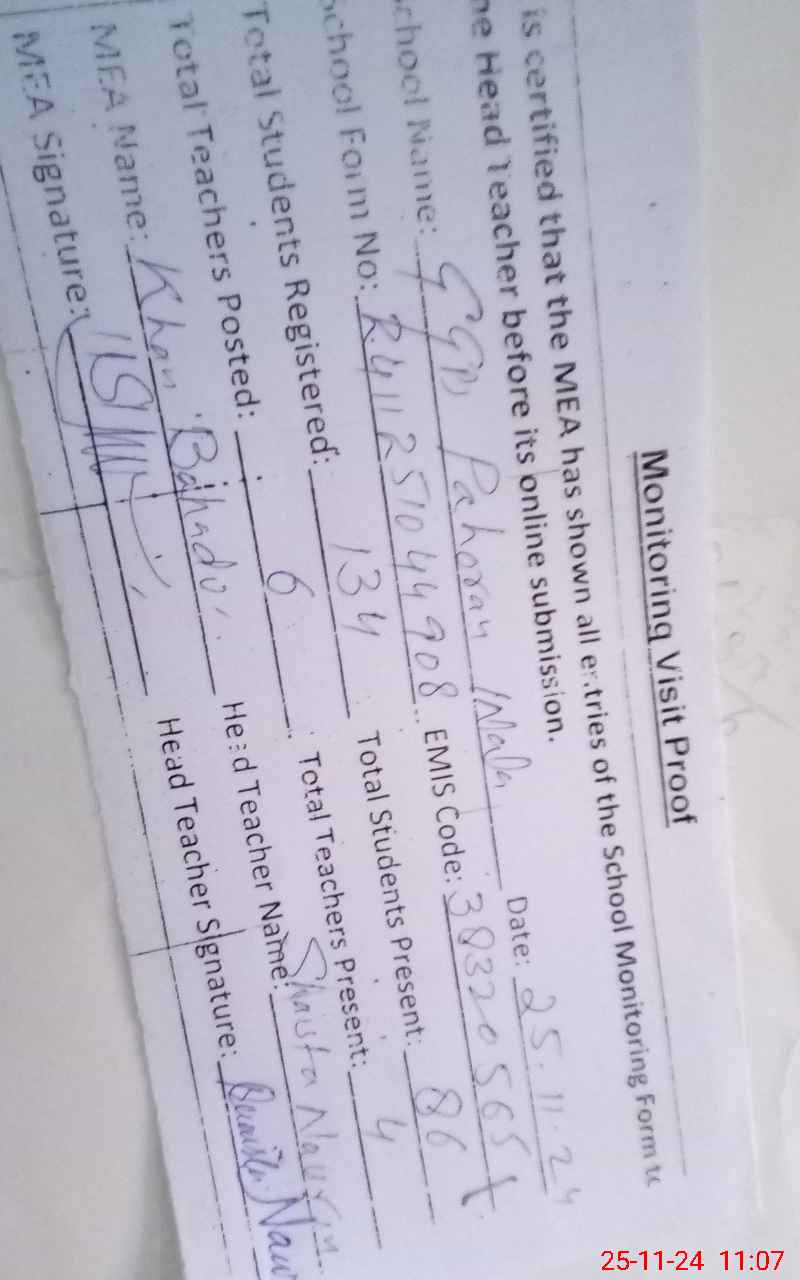 Monitoring Visit Proof
is certified that the MEA has shown all entries of the School Monitoring Form to
he Head Teacher before its online submission.
chool Name: GGPS Pahoran Wala Date: 25.11.24
School Form No: R411251044908 EMIS Code: 38320565
Total Students Registered: 134 Total Students Present: 86
Total Teachers Posted: 6 Total Teachers Present: 4
MEA Name: Khan Bahadur Head Teacher Name: Shaista Naurin
MEA Signature: Head Teacher Signature:
25-11-24 11:07